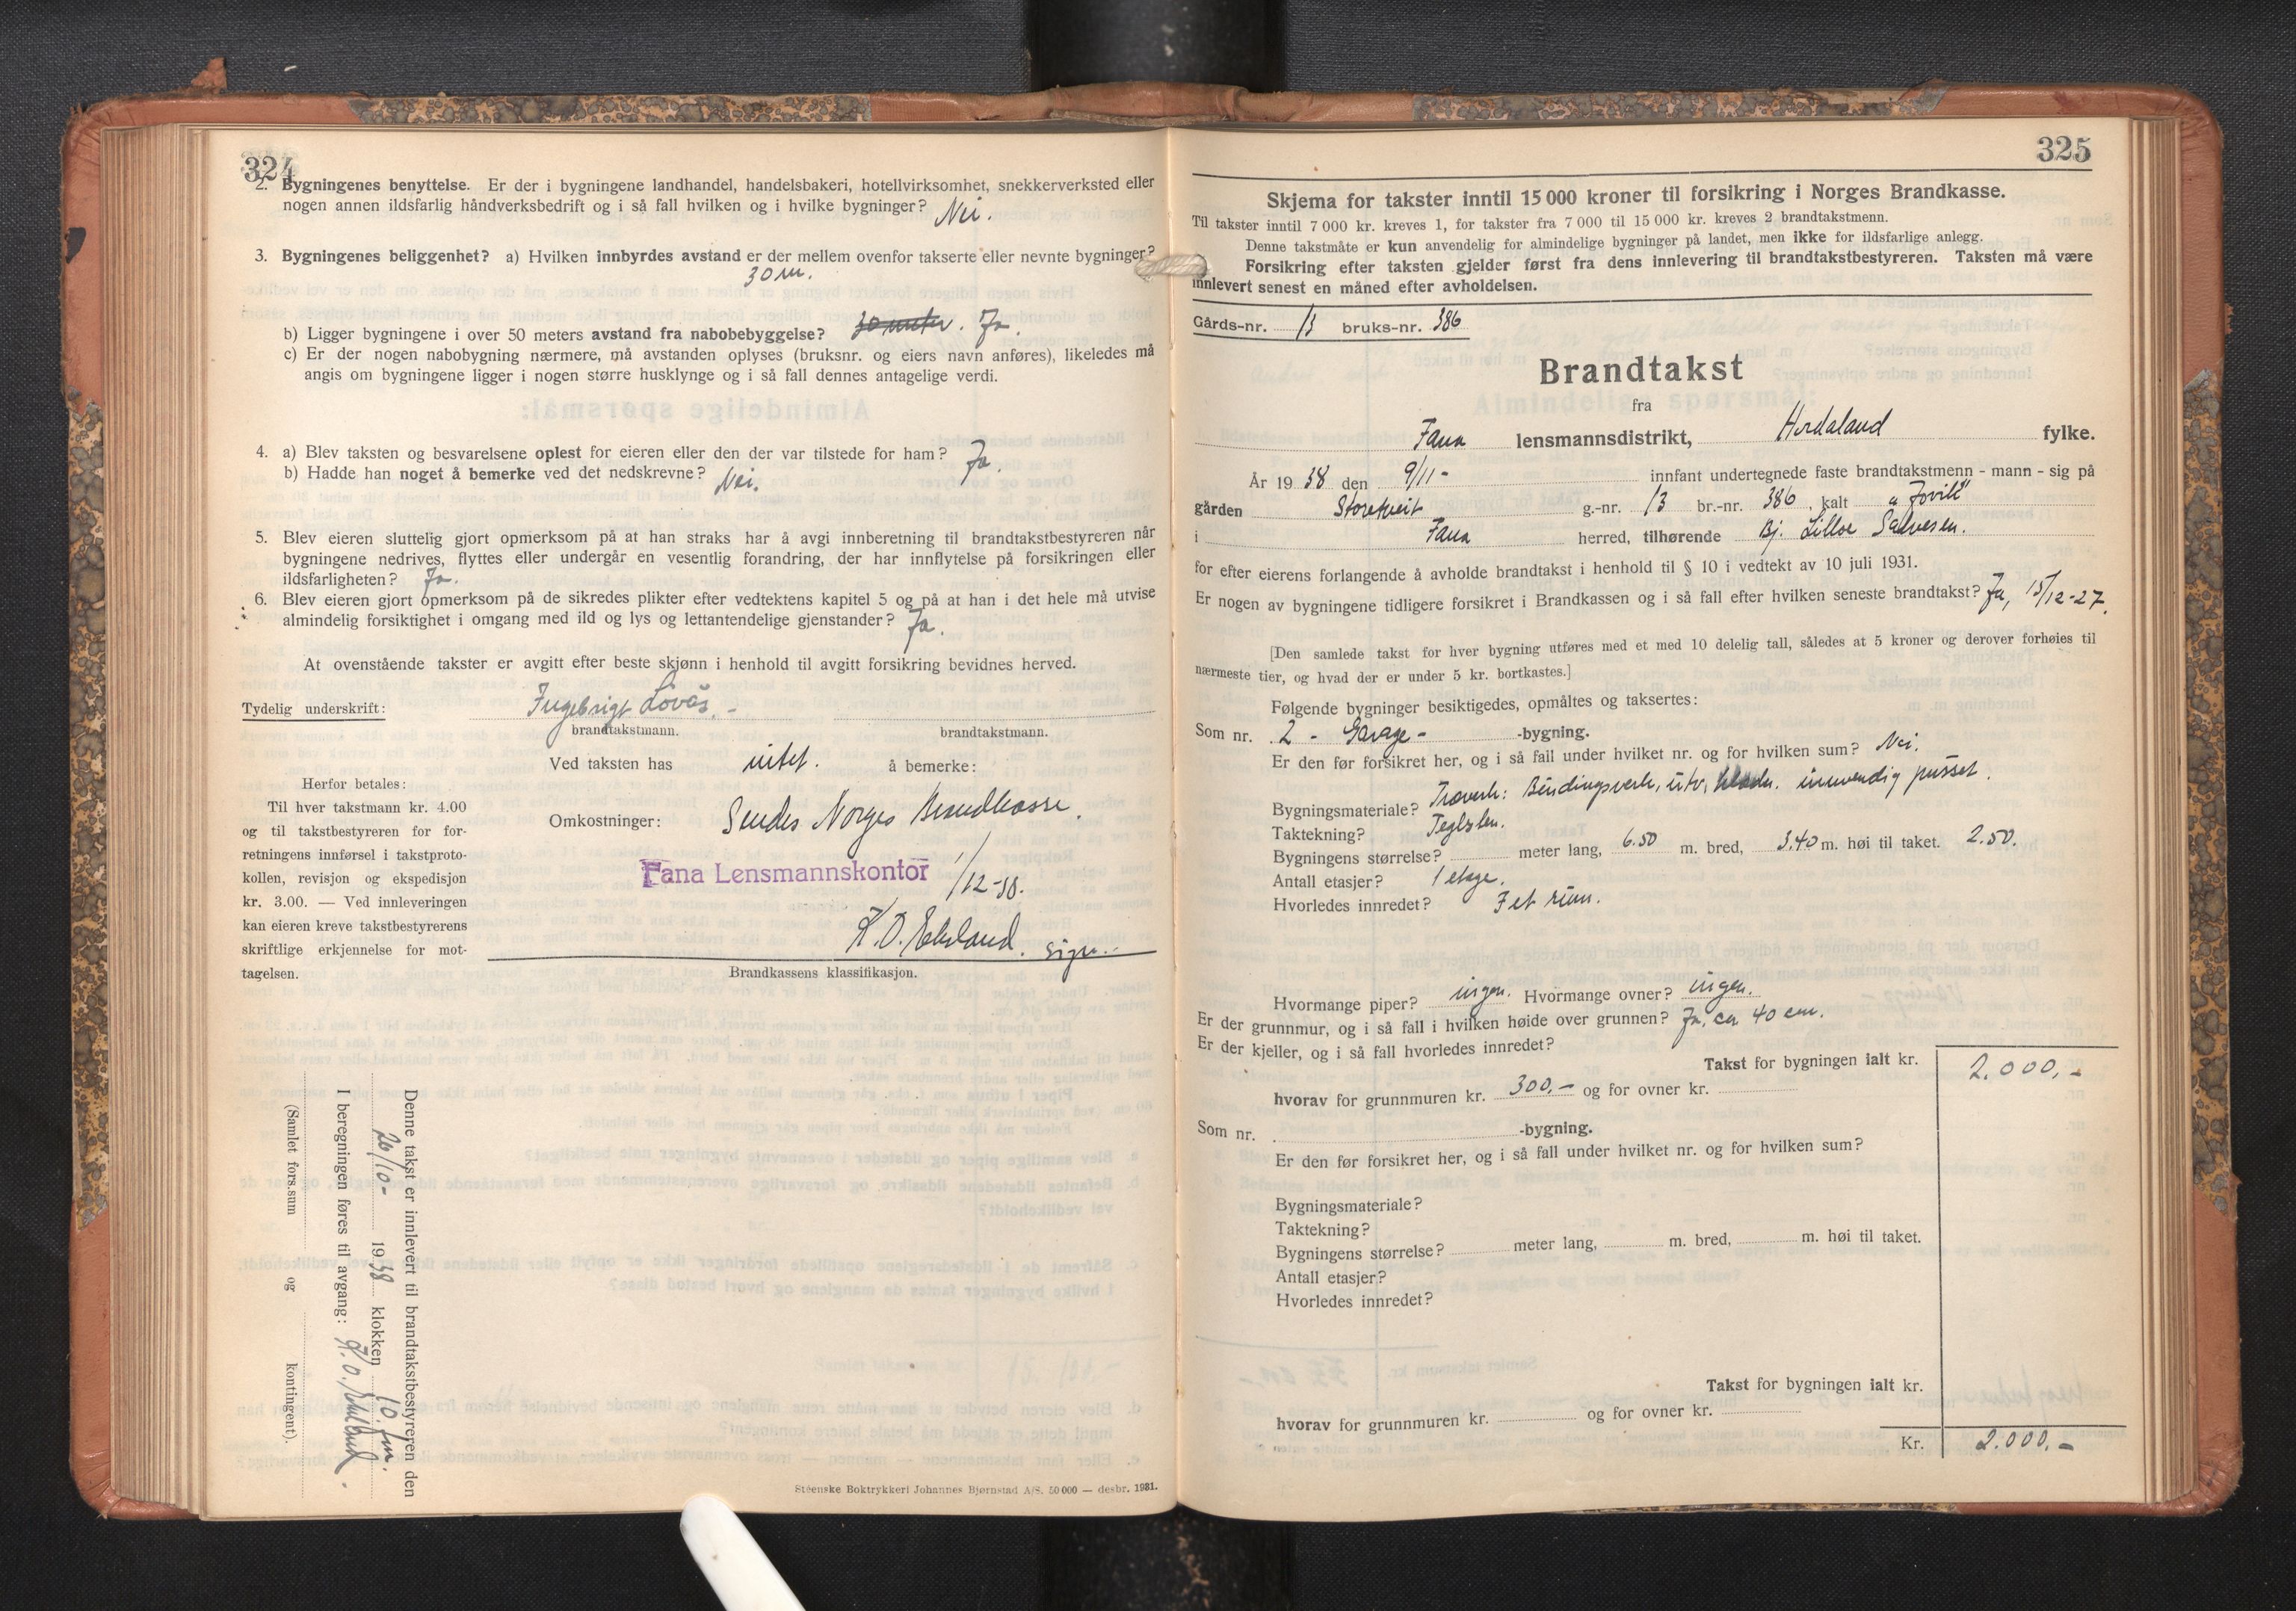 324
2. Bygningenes benyttelse. Er der i bygningene landhandel, handelsbakeri, hotellvirksomhet, snekkerverksted eller
nogen annen ildsfarlig håndverksbedrift og i så fall hvilken og i hvilke bygninger? Nei.
3. Bygningenes beliggenhet? a) Hvilken innbyrdes avstand er der mellem ovenfor takserte eller nevnte bygninger?
30 m.
b) Ligger bygningene i over 50 meters avstand fra nabobebyggelse? 30 meter. Ja.
c) Er der nogen nabobygning nærmere, må avstanden oplyses (bruksnr. og eiers navn anføres), likeledes må
angis om bygningene ligger i nogen større husklynge og i så fall dennes antagelige verdi.
4. a) Blev taksten og besvarelsene oplest for eieren eller den der var tilstede for ham? Ja.
b) Hadde han noget å bemerke ved det nedskrevne? Nei.
5. Blev eieren sluttelig gjort opmerksom på at han straks har å avgi innberetning til brandtakstbestyreren når
bygningene nedrives, flyttes eller undergår en vesentlig forandring, der har innflytelse på forsikringen eller
ildsfarligheten? Ja.
6. Blev eieren gjort opmerksom på de sikredes plikter efter vedtektens kapitel 5 og på at han i det hele må utvise
almindelig forsiktighet i omgang med ild og lys og lettantendelige gjenstander? Ja.
At ovenstående takster er avgitt efter beste skjønn i henhold til avgitt forsikring bevidnes herved.
Tydelig underskrift: Ingebrigt Løvås.-
brandtakstmann. brandtakstmann.
Ved taksten has intet. å bemerke:
Herfor betales:
Til hver takstmann kr. 4.00
og til takstbestyreren for for-
retningens innførsel i takstproto-
kollen, revisjon og ekspedisjon
kr. 3.00. — Ved innleveringen
kan eieren kreve takstbestyrerens
skriftlige erkjennelse for mot-
tagelsen.
Omkostninger: Sendes Norges Brandkasse.
Fana Lensmannskontor 1/12-38.
K.O. Ekeland. sign.-
Brandkassens klassifikasjon.
Denne takst er innlevert til brandtakstbestyreren den
26/10- 1938 klokken 10 fm.
I beregningen føres til avgang: K.O. Ekeland.
(Samlet fors.sum og kontingent).
Stéenske Boktrykkeri Johannes Bjørnstad A/S. 50 000 — desbr. 1931.
325
Skjema for takster inntil 15 000 kroner til forsikring i Norges Brandkasse.
Til takster inntil 7 000 kr. kreves 1, for takster fra 7 000 til 15 000 kr. kreves 2 brandtakstmenn.
Denne takstmåte er kun anvendelig for almindelige bygninger på landet, men ikke for ildsfarlige anlegg.
Forsikring efter taksten gjelder først fra dens innlevering til brandtakstbestyreren. Taksten må være
innlevert senest en måned efter avholdelsen.
Gårds-nr. 13 bruks-nr. 386
Brandtakst
fra
Fana lensmannsdistrikt, Hordaland fylke.
År 1938 den 9/11- innfant undertegnede faste brandtakstmenn - mann - sig på
gården Storetveit g.-nr. 13 br.-nr. 386, kalt "Jovill"
i Fana herred, tilhørende Bj. Lilloe Salvesen.
for efter eierens forlangende å avholde brandtakst i henhold til § 10 i vedtekt av 10 juli 1931.
Er nogen av bygningene tidligere forsikret i Brandkassen og i så fall efter hvilken seneste brandtakst? Ja, 15/12-27.
[Den samlede takst for hver bygning utføres med et med 10 delelig tall, således at 5 kroner og derover forhøies til
nærmeste tier, og hvad der er under 5 kr. bortkastes.]
Følgende bygninger besiktigedes, opmåltes og taksertes:
Som nr. 2 - Garage- -bygning.
Er den før forsikret her, og i så fall under hvilket nr. og for hvilken sum? Nei.
Bygningsmateriale? Træverk: Bindingsverk, utv. klædn. innvendig pusset.
Taktekning? Teglsten.
Bygningens størrelse? meter lang, 6.50 m. bred, 3.40 m. høi til taket. 2.50.
Antall etasjer? 1 etage.
Hvorledes innredet? I et rum.
Hvormange piper? ingen. Hvormange ovner? ingen.
Er der grunnmur, og i så fall i hvilken høide over grunnen? Ja, ca 40 cm.
Er der kjeller, og i så fall hvorledes innredet?
Takst for bygningen ialt kr. 2.000,-
hvorav for grunnmuren kr. 300,- og for ovner kr.
Som nr. -bygning.
Er den før forsikret her, og i så fall under hvilket nr. og for hvilken sum?
Bygningsmateriale?
Taktekning?
Bygningens størrelse? meter lang, m. bred, m. høi til taket.
Antall etasjer?
Hvorledes innredet?
Takst for bygningen ialt kr.
hvorav for grunnmuren kr. og for ovner kr.
Kr. 2.000,-